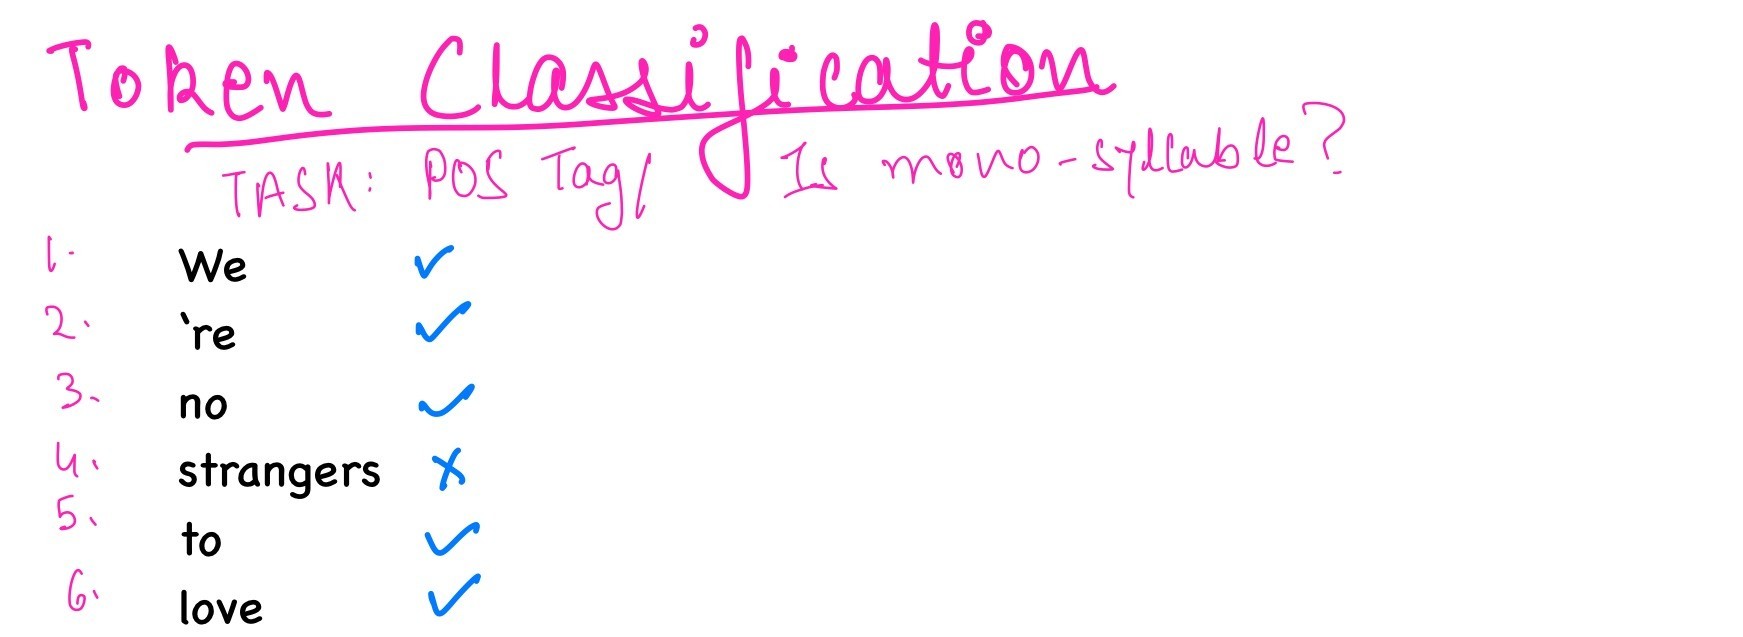 Token Classification
TASK: POS Tag/ Is mono-syllable?
1. We ✓
2. `re ✓
3. no ✓
4. strangers ✗
5. to ✓
6. love ✓